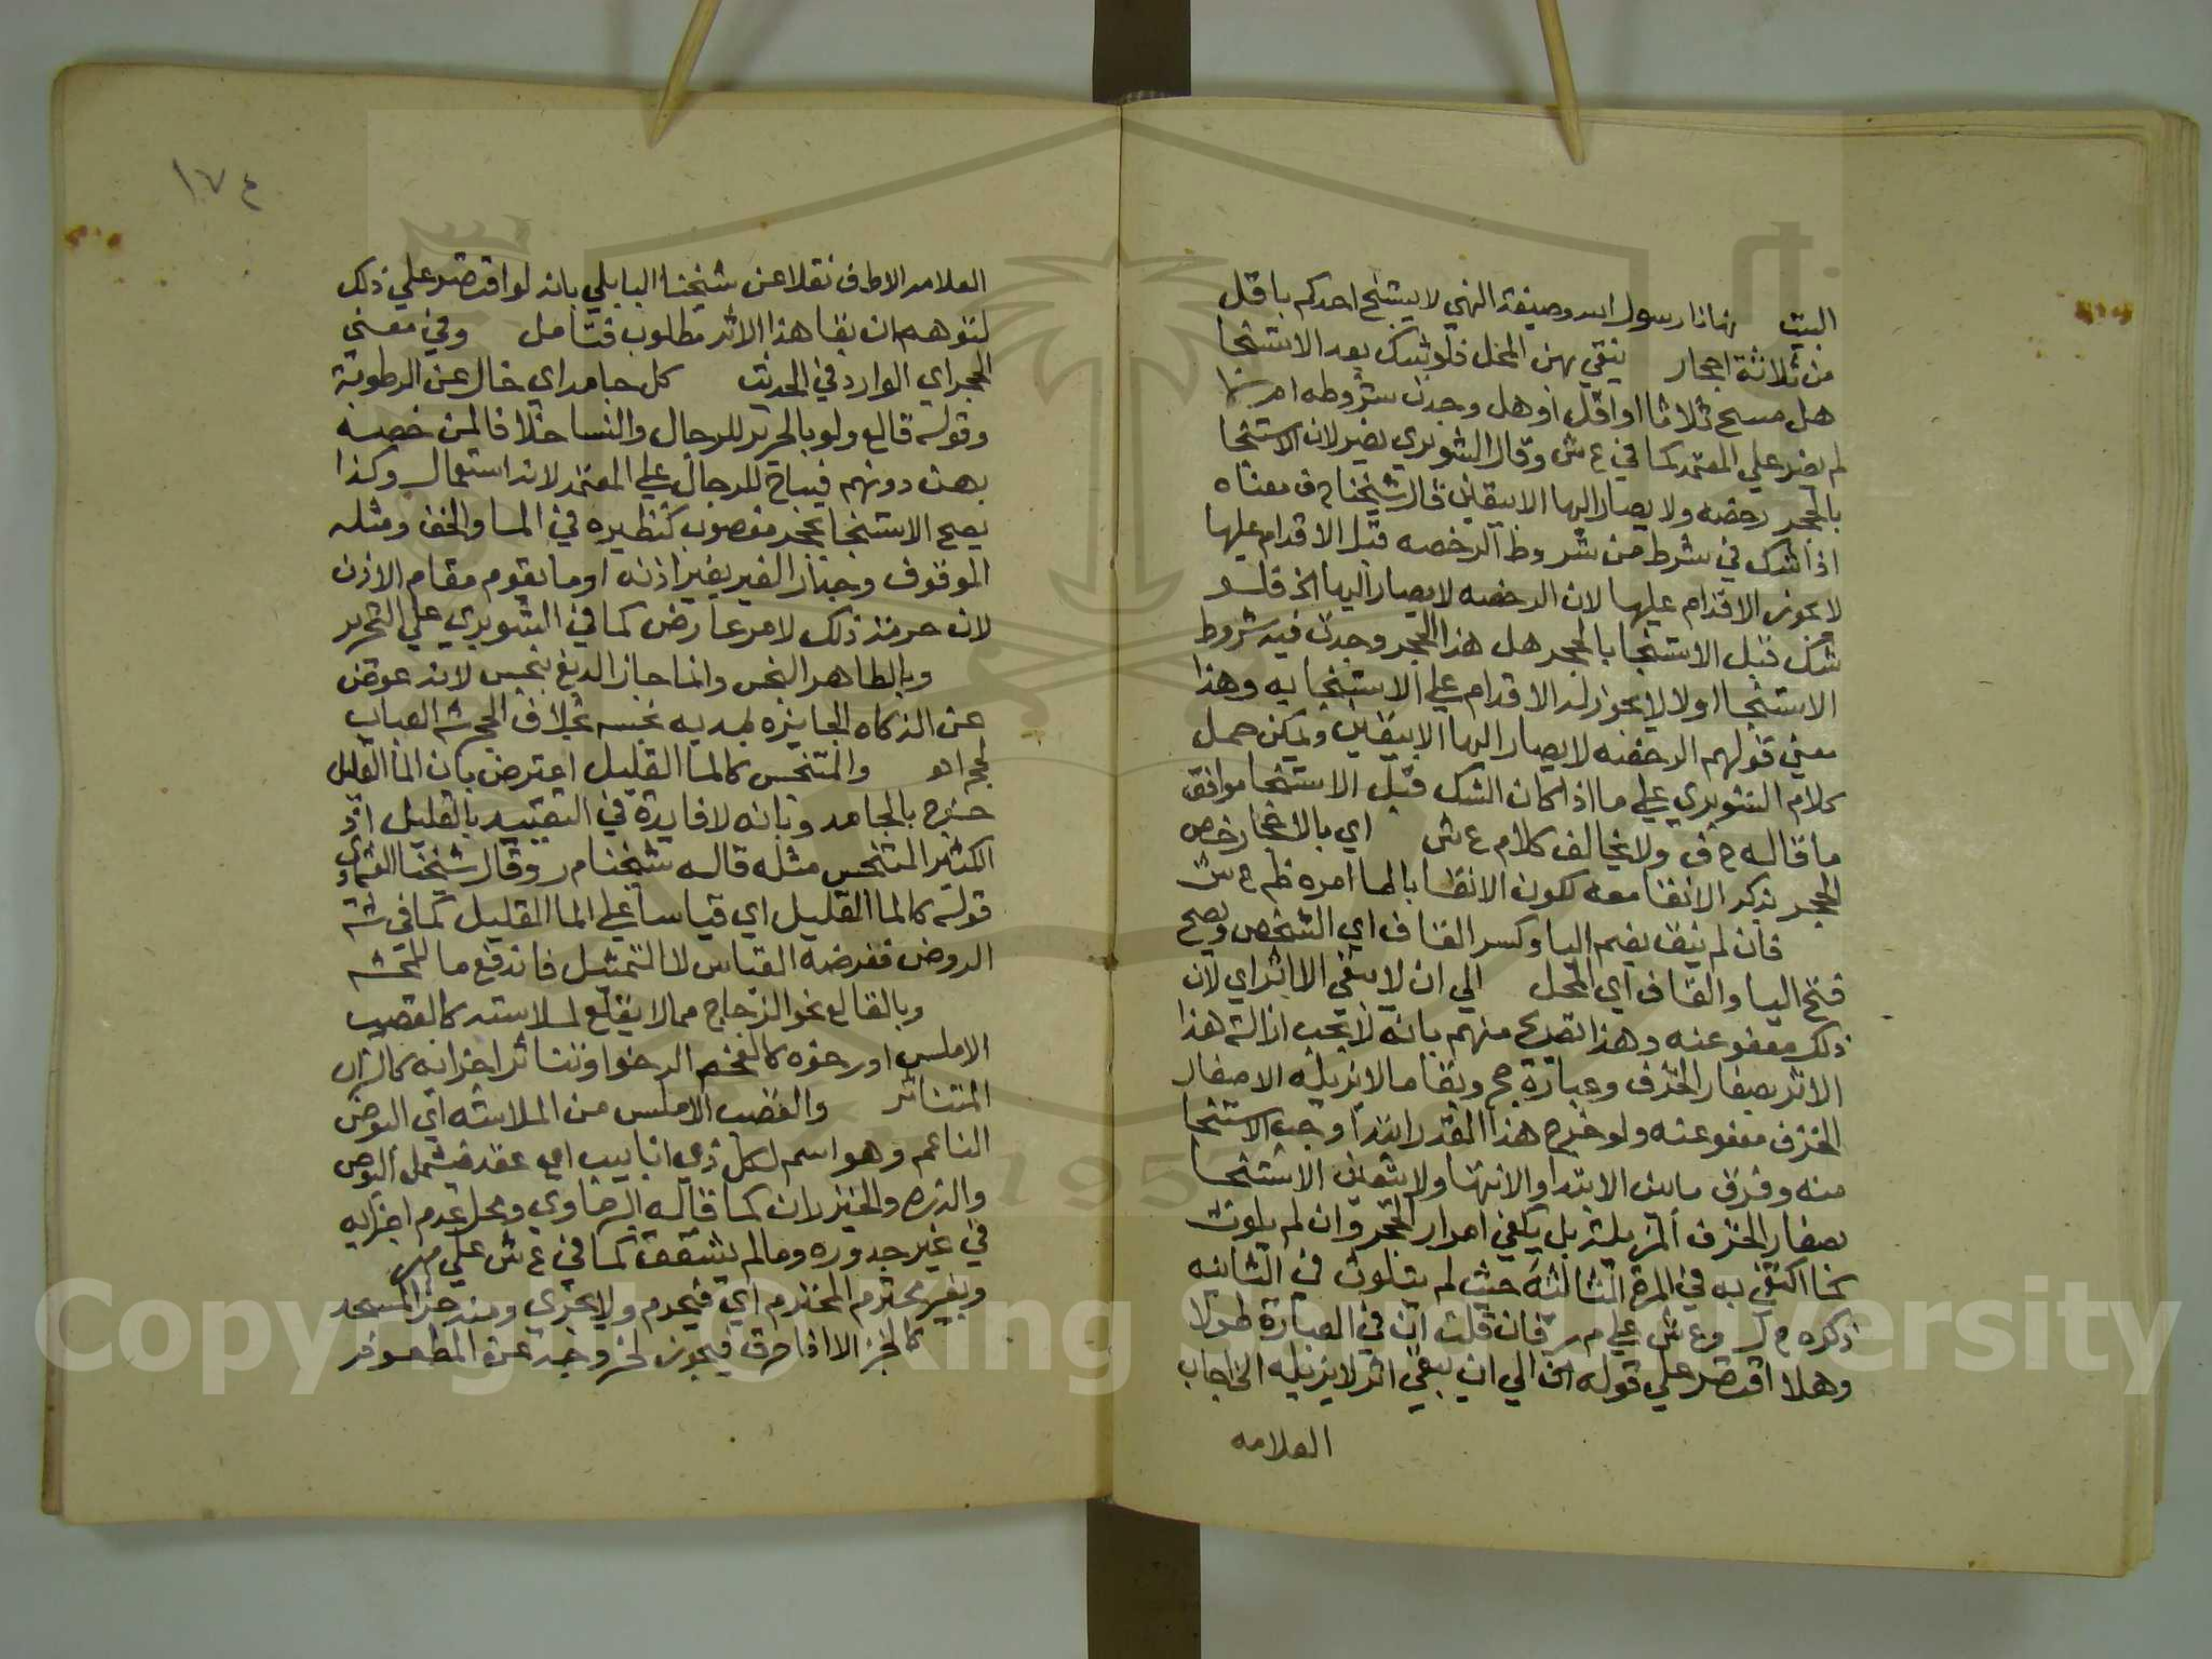 البيت نهانا رسول الله وصيغة النهي لا يستنج احدكم باقل
من ثلاثة احجار ينقي بهن المحل فلو شك بعد الاستنجا
هل مسح ثلاثا او اقل او هل وجدت شروطه ام لا
لم يضر علي المعتمد كما في ع ش وقال الشوبري يضر لان الاستنجا
بالحجر رخصه ولا يصار اليها الا بيقين قال شيخنا ح ف معناه
اذا شك في شرط من شروط الرخصه قبل الاقدام عليها
لا يجوز الاقدام عليها لان الرخصه لا يصار اليها الخ فلو
شك قبل الاستنجا بالحجر هل هذا الحجر وجدت فيه شروط
الاستنجا اولا لا يجوز له الاقدام علي الاستنجا به وهذا
معني قولهم الرخصه لا يصار اليها الا بيقين ويمكن حمل
كلام الشوبري علي ما اذا كان الشك قبل الاستنجا موافق
ما قاله ح ف ولا يخالف كلام ع ش اي بالاحجار خص
الحجر بذكر الانقا معه لكون الانقا بالما امره ظم ع ش
فان لم ينق بضم اليا وكسر القاف اي الشخص ويصح
فتح اليا والقاف اي المحل الي ان لا يبقي الا اثر اي لان
ذلك معفو عنه وهذا تصريح منهم بانه لا يجب ازالة هذا
الاثر بصغار الخزف وعبارة حج وبقا ما لا يزيله الا صغار
الخزف معفو عنه ولو خرج هذا القدر ابتدا وجب الاستنجا
منه وفرق ما بين الابتدا والانتها ولا يتعين الاستنجا
بصغار الخزف المزيلة بل يكفي امرار الحجر وان لم يلوث
كما اكتفي به في المرة الثالثة حيث لم يتلوث في الثانيه
ذكره ح ل وع ش علي م ر فان قلت ان في العبارة طولا
وهلا اقتصر علي قوله الخ الي ان يبقي اثر لا يزيله الخ اجاب
العلامه
١٧٤
العلامه الاطفي نقلا عن شيخنا البابلي بانه لو اقتصر علي ذلك
لتوهم ان بقا هذا الاثر مطلوب فتامل وفي معني
الحجر اي الوارد في الحديث كل جامد اي خال عن الرطوبة
وقوله قالع ولو بالحرير للرجال والنسا خلافا لمن خصه
بهن دونهم فيباح للرجال علي المعتمد لانه استعمال وكذا
يصح الاستنجا بحجر مغصوب كنظيره في الما والخف ومثله
الموقوف وجدار الغير بغير اذنه او ما يقوم مقام الاذن
لان حرمة ذلك لامر عارض كما في الشوبري علي التحرير
وبالطاهر النجس وانما جاز الدبغ بنجس لانه عوض
عن الذكاه الجايزه بمديه نجسه بخلاف الحجر شه العباب
لحج اه والمتنجس كالما القليل اعترض بان الما القليل
خرج بالجامد وبانه لا فايدة في التقييد بالقليل اذ
الكثير المتنجس مثله قاله شيخنا م ر وقال شيخنا
قوله كالما القليل اي قياسا علي الما القليل كما في شه
الروض فغرضه القياس لا التمثيل فاندفع ما للمحشه
وبالقالع نحو الزجاج مما لا يقلع لملاسته كالقصب
الاملس او رخوه كالفحم الرخو او تناثر اجزايه كالتراب
المتناثر والقصب الاملس من الملاسته اي البوص
الناعم وهو اسم لكل ذي انابيب اي عقد فيشمل البوص
والذره والخيزران كما قاله الرحماوي ومحل عدم اجزايه
في غير جدوره وما لم يشقق كما في ع ش علي م ر
وبغير محترم المحترم اي فيحرم ولا يجزي ومنه جزا المسجد
كالخبز الا اذا حرق فيجوز لخروجه عن المطعومة
Copyright © King Saud University
1957